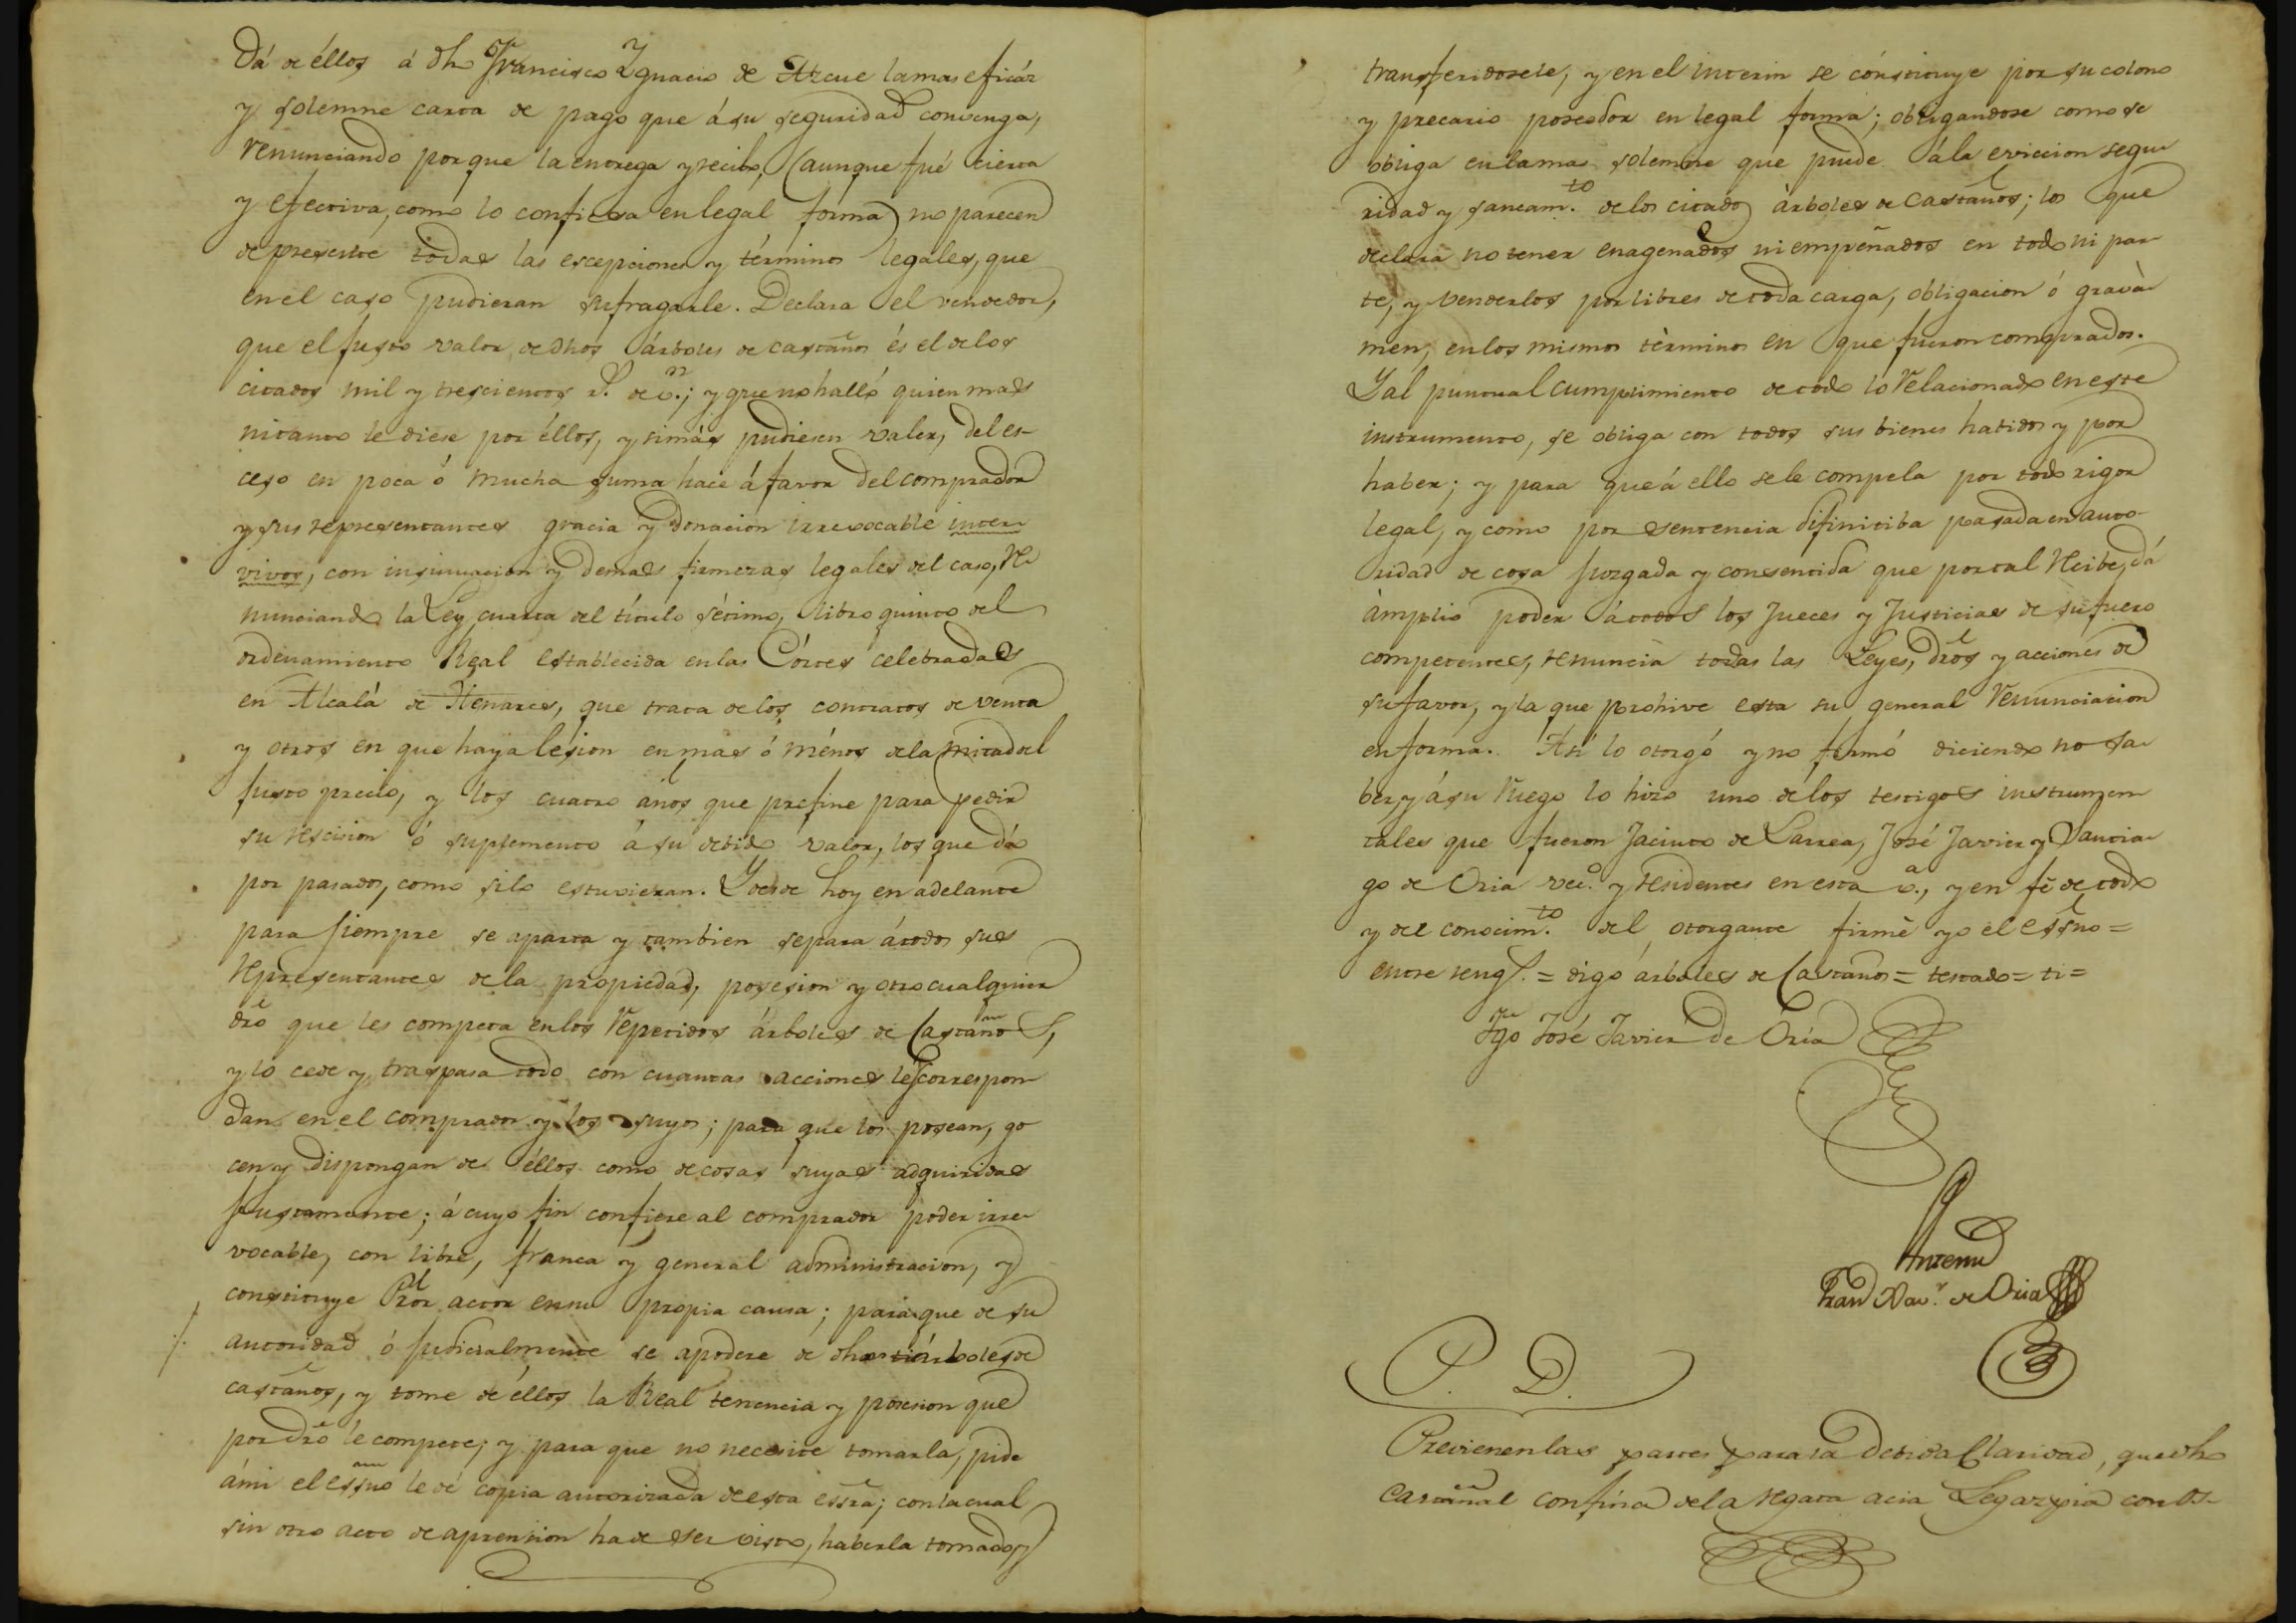 dá de éllos á dho Francisco Ygnacio de Azcue la mas eficáz
y solemne carta de pago que á su seguridad convenga,
renunciando por que la entrega y recibo, (aunque fué cierta
y efectiva, como lo confiesa en legal forma) no parecen
de presente todas las escepciones y términos legales, que
en el caso pudieran sufragarle. Declara el vendedor,
que el justo valor de dhos árboles de castaños és el de los
citados mil y trescientos r.s de v.n; y que no halló quien mas
ni tanto le diese por éllos, y si más pudiesen valer, del es-
ceso en poca ó mucha suma hace á favor del comprador
y sus representantes gracia y donacion irrevocable inter-
vivos, con insinuacion y demas firmezas legales del caso, re-
nunciando la Ley cuarta del título sétimo, libro quinto del
ordenamiento Real establecida en las Córtes celebradas
en Alcalá de Henares, que trata de los contratos de venta
y otros en que haya lesion en mas ó ménos de la mitad del
justo precio, y los cuatro años que prefine para pedir
su rescision ó suplemento á su debido valor, los que dá
por pasados, como si lo estuvieran. Y desde hoy en adelante
para siempre se aparta y tambien separa á todos sus
representantes de la propiedad, posesion y otro cualquier
dro que les competa en los repetidos árboles de Castaños,
y lo cede y traspasa todo con cuantas acciones les correspon-
dan en el comprador y los suyos; para que los posean, go
cen y dispongan de éllos como de cosas suyas adquiridas
justamente; á cuyo fin confiere al comprador poder irre-
vocable, con libre, franca y general administracion, y
constituye Pror actor en su propia causa; para que de su
autoridad ó judicialmente se apodere de dhos ti árboles de
castaños, y tome de éllos la Real tenencia y posesion que
por dro le compete; y para que no necesite tomarla, pide
á mi el essno le dé copia autorizada de esta essra; con la cual
sin otro acto de aprension ha de ser visto, haberla tomado, y
transferidosele, y en el interin se constituye por su colono
y precario poseedor en legal forma; obligandose como se
obliga en la mas solemne que puede á la eviccion segu-
ridad y saneam.to de los citados árboles de Castaños; los que
declara no tener enagenados ni empeñados en todo ni par-
te, y venderlos por libres de toda carga, obligacion ó gravà-
men, en los mismos tèrminos en que fueron comprados.
Y al puntual cumplimiento de todo lo relacionado en este
instrumento, se obliga con todos sus bienes habidos y por
haber; y para que á ello se le compela por todo rigor
legal, y como por sentencia difinitiba pasada en auto-
ridad de cosa juzgada y consentida que por tal recibe, dá
àmplio poder á todos los Jueces y Justicias de su fuero
competentes, renuncia todas las Leyes, dros y acciones de
su favor, y la que prohive esta su general renunciacion
en forma. Así lo otorgó y no firmó diciendo no sa-
ber, y á su ruego lo hizo uno de los testigos instrumen-
tales que fueron Jacinto de Larrea, José Javier y Santia-
go de Oria vec.s y residentes en esta v.a, y en fé de todo
y del conocim.to del otorgante firmé yo el essno=
entre rengl.s = digo árboles de Castaños = testado = ti =
Tgo José Javier de Oria
Antemi
Fran.co Xav.r de Oria
P. D.
Previenen las partes para la debida Claridad, que dho
Castañal confina de la regata acia Legazpia con os-